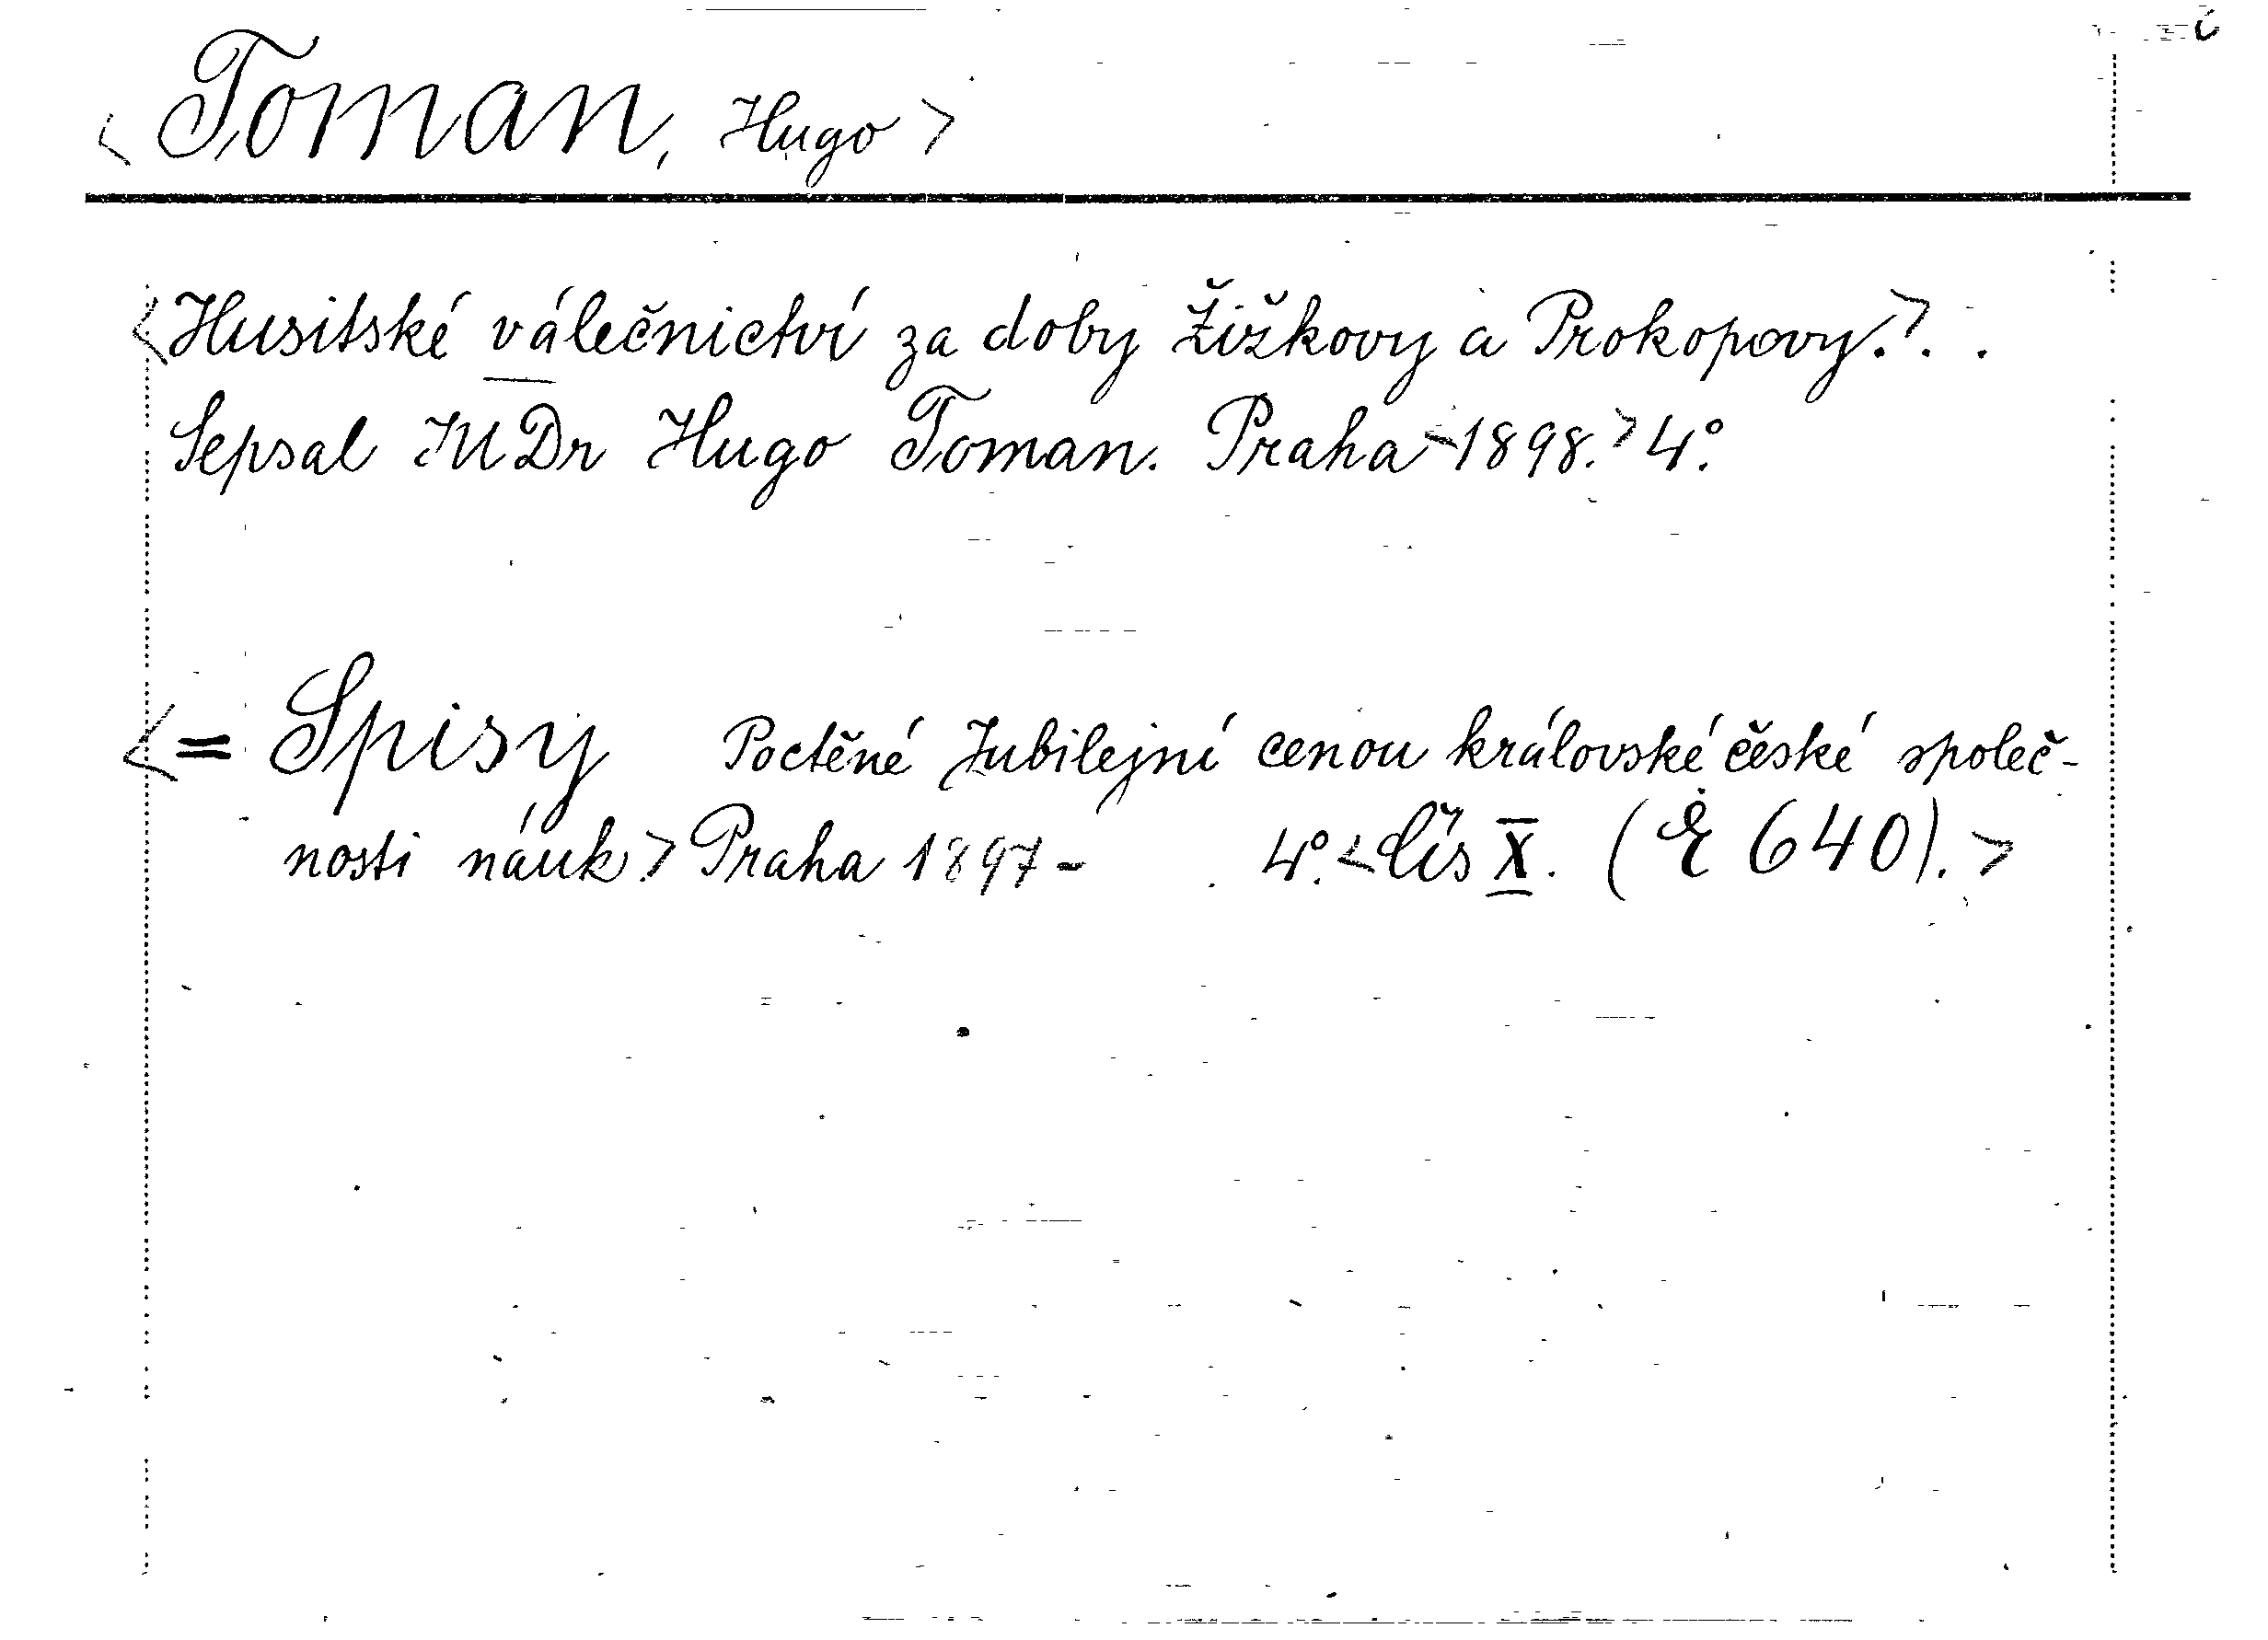 < Toman, Hugo >
<Husitské válečnictví za doby Žižkovy a Prokopovy.>.
Sepsal JUDr Hugo Toman. Praha <1898.> 4°.
<= Spisy Poctěné Jubilejní cenou královské české společ-
nosti náuk.> Praha 1897- 4°. <Čís X. ( 640).>